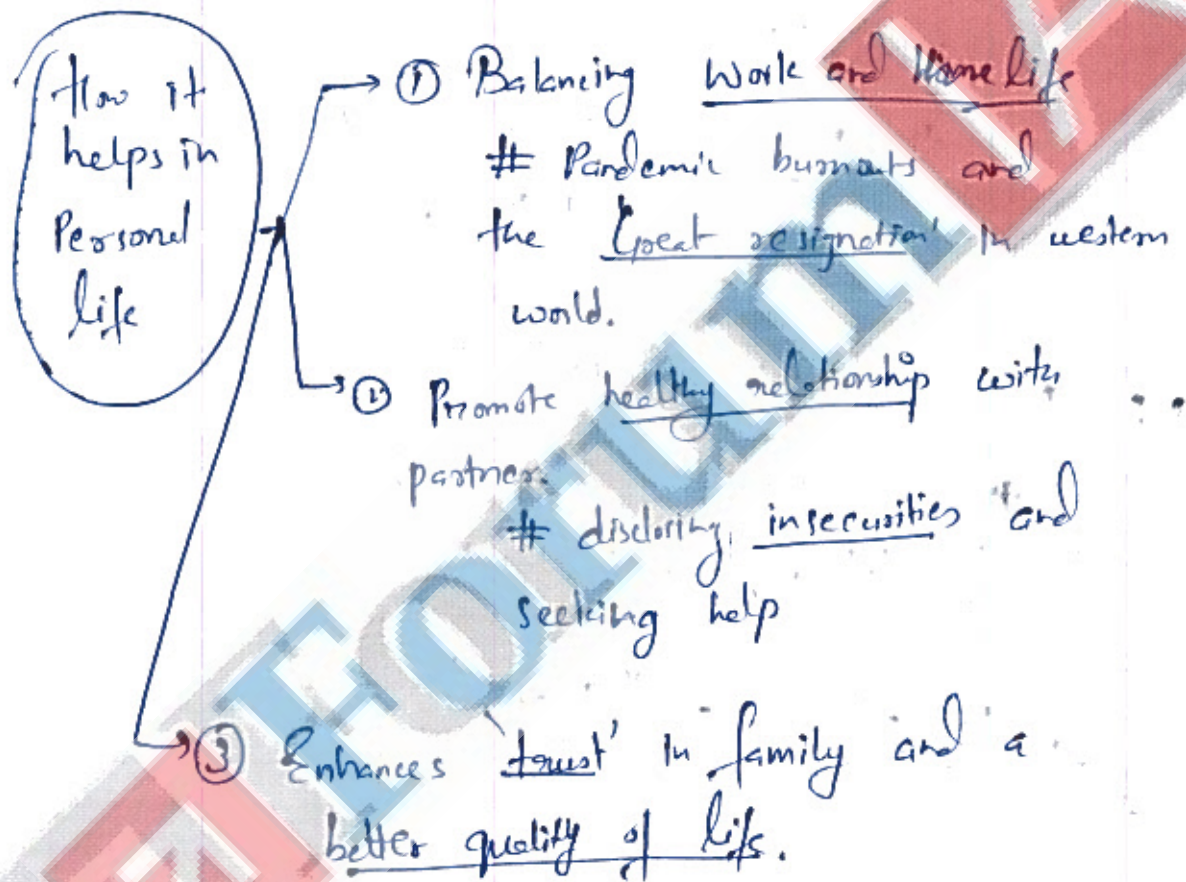 How it
helps in
Personal
life
① Balancing work and Home life
# Pandemic burnouts and
the 'Great resignation' in western
world.
② Promote healthy relationship with
partner.
# disclosing insecurities and
seeking help
③ Enhances 'trust' in family and a
better quality of life.
Forum